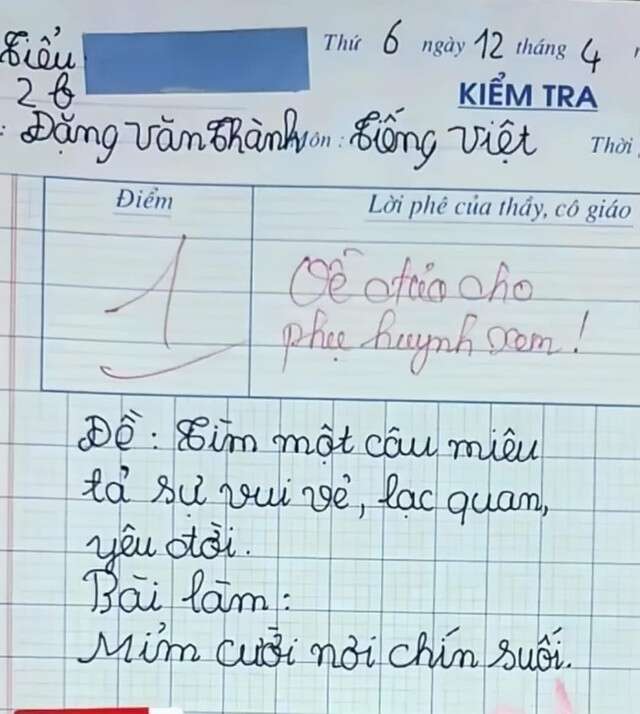 Tiểu
Thứ 6 ngày 12 tháng 4
2b
KIỂM TRA
: Đặng Văn Thành Môn : Tiếng Việt Thời
Điểm
Lời phê của thầy, cô giáo
1
Về đưa cho
phụ huynh xem!
Đề : Tìm một câu miêu
tả sự vui vẻ, lạc quan,
yêu đời.
Bài làm :
Mỉm cười nơi chín suối.